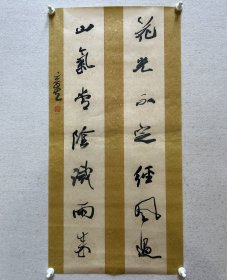 花光不定經風過
山氣常陰識雨來